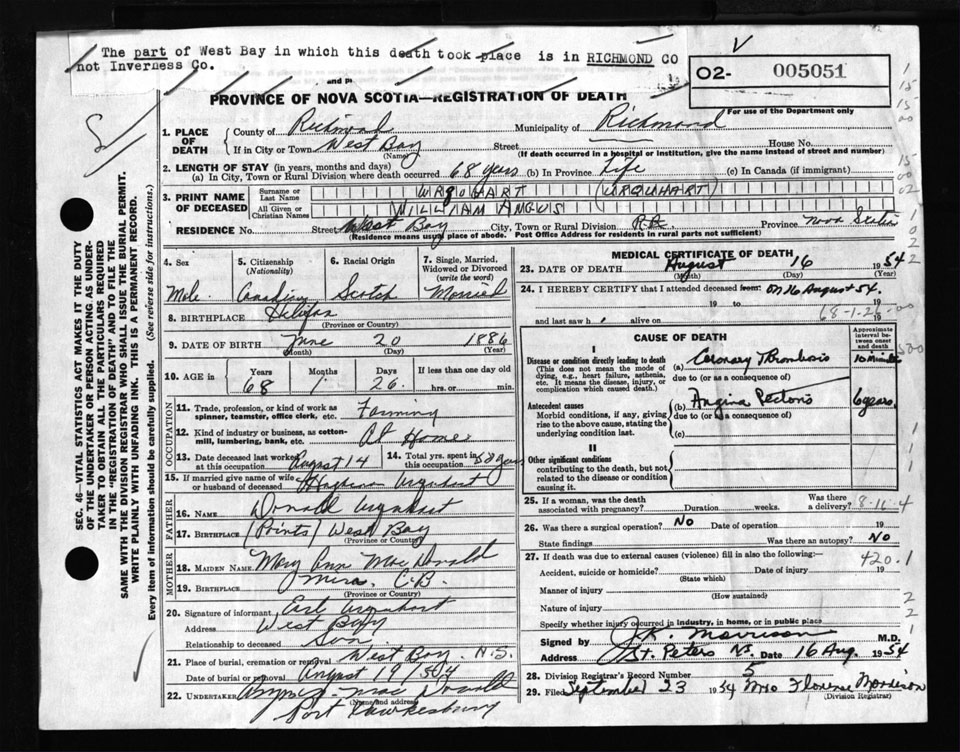 The part of West Bay in which this death took place is in RICHMOND CO
not Inverness Co.
02- 005051
For use of the Department only
PROVINCE OF NOVA SCOTIA—REGISTRATION OF DEATH
1. PLACE OF DEATH
County of Richmond Municipality of Richmond
If in City or Town West Bay Street House No.
(Name) (If death occurred in a hospital or institution, give the name instead of street and number)
2. LENGTH OF STAY (in years, months and days)
(a) In City, Town or Rural Division where death occurred 68 years (b) In Province Life (c) In Canada (if immigrant)
3. PRINT NAME OF DECEASED
Surname or Last Name URQUHART (URQUHART)
All Given or Christian Names WILLIAM ANGUS
RESIDENCE No. Street West Bay City, Town or Rural Division Province Nova Scotia
(Residence means usual place of abode. Post Office Address for residents in rural parts not sufficient)
4. Sex
Male
5. Citizenship (Nationality)
Canadian
6. Racial Origin
Scotch
7. Single, Married, Widowed or Divorced (write the word)
Married
8. BIRTHPLACE Halifax
(Province or Country)
9. DATE OF BIRTH June 20 1886
(Month) (Day) (Year)
10. AGE in Years Months Days If less than one day old
68 1 26 hrs. or min.
OCCUPATION
11. Trade, profession, or kind of work as spinner, teamster, office clerk, etc. Farming
12. Kind of industry or business, as cotton-mill, lumbering, bank, etc. At Home
13. Date deceased last worked at this occupation August 14
14. Total yrs. spent in this occupation 50 years
15. If married give name of wife or husband of deceased Urquhart
FATHER
16. Name Donald Urquhart
17. Birthplace (Points) West Bay
(Province or Country)
MOTHER
18. MAIDEN NAME Mary Ann MacDonald
19. BIRTHPLACE Mira, C.B.
(Province or Country)
20. Signature of informant Earl Urquhart
Address West Bay
Relationship to deceased Son
21. Place of burial, cremation or removal West Bay N.S.
Date of burial or removal August 19/54
22. UNDERTAKER MacDonald
(Name and address)
Port Hawkesbury
MEDICAL CERTIFICATE OF DEATH
23. DATE OF DEATH August 16 1954
(Month) (Day) (Year)
24. I HEREBY CERTIFY that I attended deceased from on 16 August 54. 19
19 to 19
and last saw h alive on 19
68-1-26-00
CAUSE OF DEATH
Approximate interval between onset and death
I
Disease or condition directly leading to death
(This does not mean the mode of dying, e.g., heart failure, asthenia, etc. It means the disease, injury, or complication which caused death.)
(a) Coronary Thrombosis 10 minutes
due to (or as a consequence of)
Antecedent causes
Morbid conditions, if any, giving rise to the above cause, stating the underlying condition last.
(b) Angina Pectoris 6 years
due to (or as a consequence of)
(c)
II
Other significant conditions
contributing to the death, but not related to the disease or condition causing it
25. If a woman, was the death associated with pregnancy? Duration weeks. Was there a delivery?
8-16-4
26. Was there a surgical operation? No Date of operation 19
State findings Was there an autopsy? No
27. If death was due to external causes (violence) fill in also the following:—
420.1
Accident, suicide or homicide? Date of injury 19
(State which)
Manner of injury
(How sustained)
Nature of injury
Specify whether injury occurred in industry, in home, or in public place
Signed by J.K. Morrison M.D.
Address St. Peters N.S. Date 16 Aug. 1954
28. Division Registrar's Record Number 5
29. Filed September 23 1954 Mrs Florence Morrison
(Division Registrar)
SEC. 46—VITAL STATISTICS ACT MAKES IT THE DUTY
OF THE UNDERTAKER OR PERSON ACTING AS UNDER-
TAKER TO OBTAIN ALL THE PARTICULARS REQUIRED
IN THE "REGISTRATION OF DEATH" AND TO FILE THE
SAME WITH THE DIVISION REGISTRAR WHO SHALL ISSUE THE BURIAL PERMIT.
WRITE PLAINLY WITH UNFADING INK. THIS IS A PERMANENT RECORD.
Every item of information should be carefully supplied. (See reverse side for instructions.)